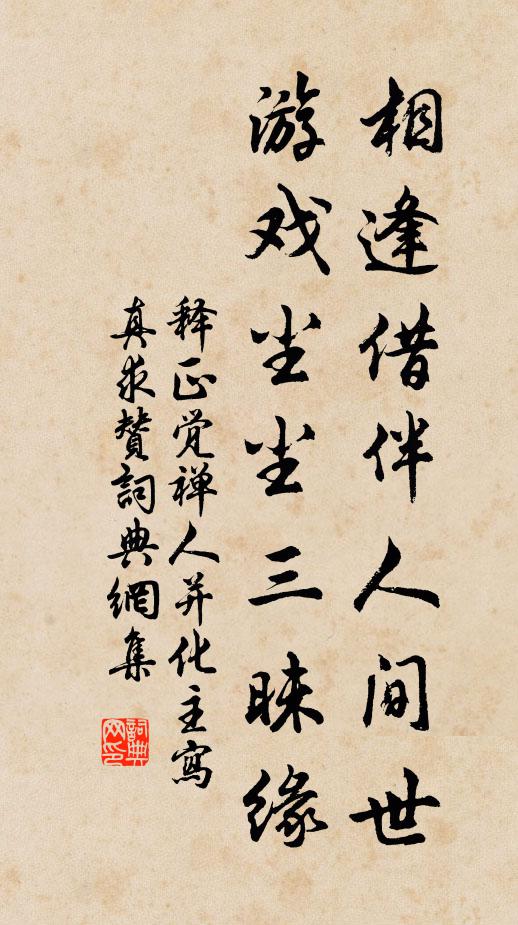 相逢借伴人间世
游戏尘尘三昧缘
释正觉禅人并化主寫
真求赞詞典網集
詞典
网印